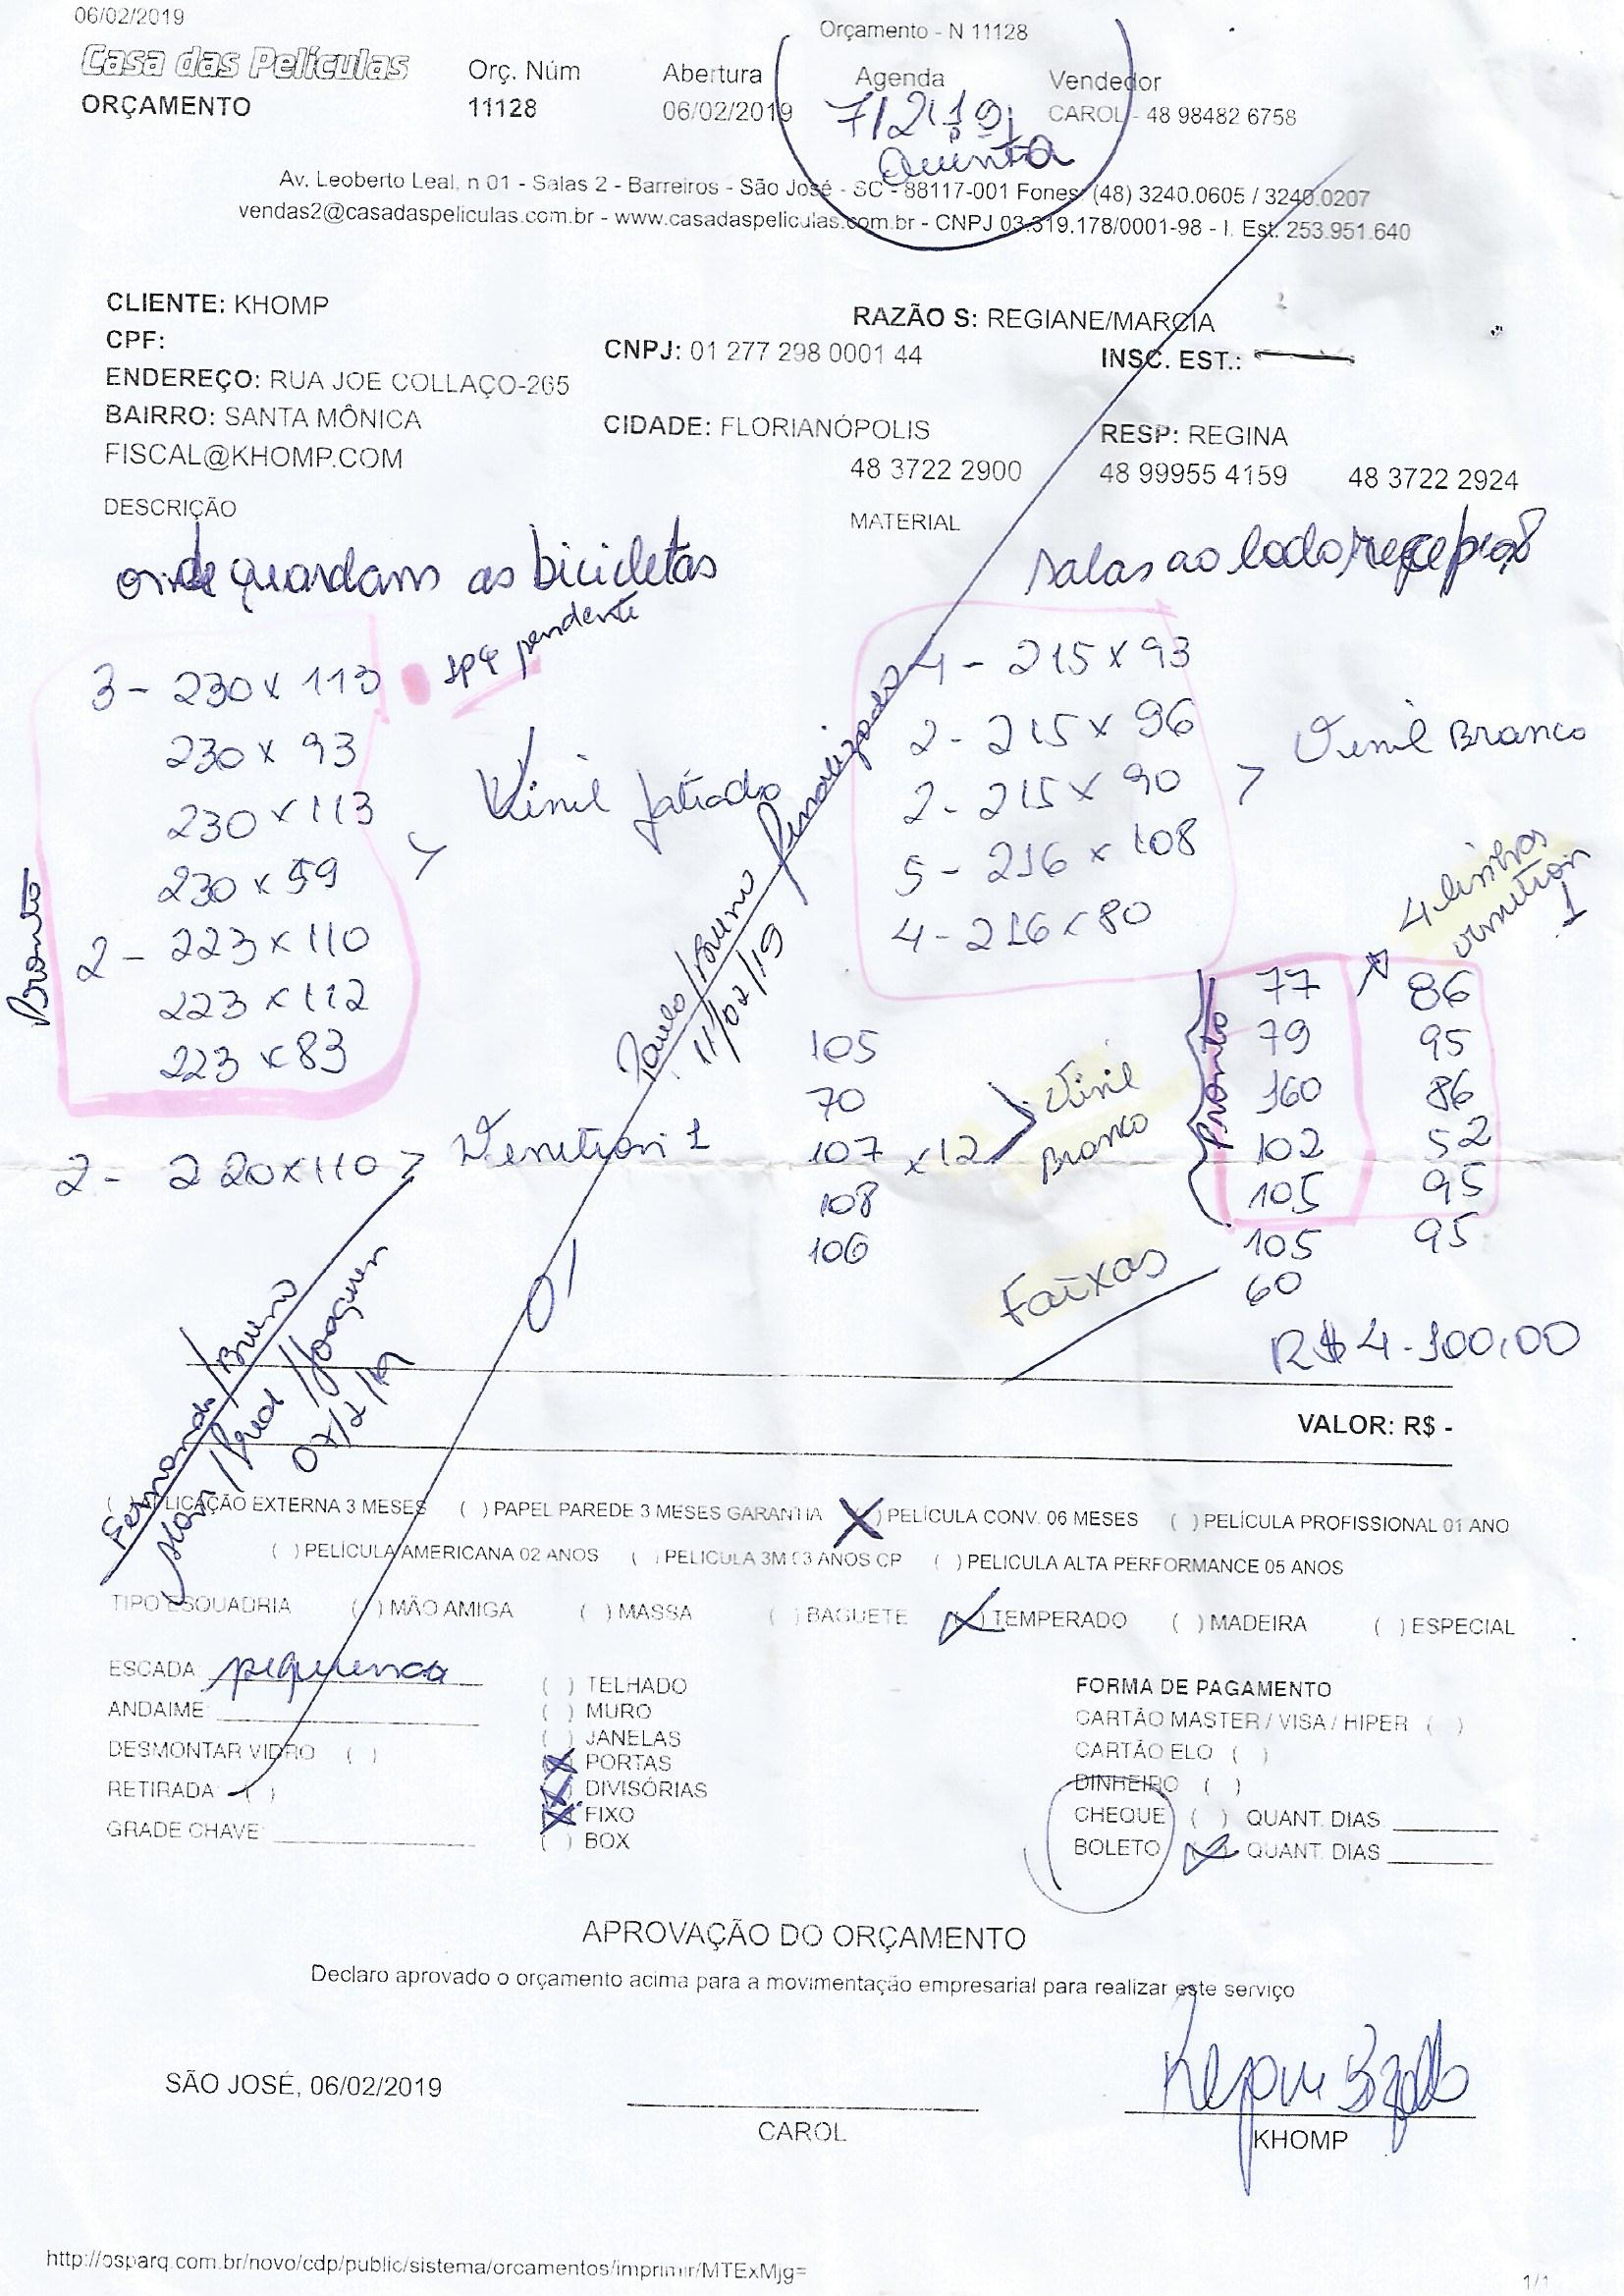 06/02/2019
Orçamento - N 11128
Casa das Películas
ORÇAMENTO
Orç. Núm
11128
Abertura
06/02/2019
Agenda
7/2/19
Quinta
Vendedor
CAROL - 48 98482 6758
Av. Leoberto Leal, n 01 - Salas 2 - Barreiros - São José - SC - 88117-001 Fones: (48) 3240.0605 / 3240.0207
vendas2@casadaspeliculas.com.br - www.casadaspeliculas.com.br - CNPJ 03.319.178/0001-98 - I. Est. 253.951.640
CLIENTE: KHOMP
RAZÃO S: REGIANE/MARCIA
CPF:
CNPJ: 01 277 298 0001 44
INSC. EST.:
ENDEREÇO: RUA JOE COLLAÇO-265
BAIRRO: SANTA MÔNICA
CIDADE: FLORIANÓPOLIS
RESP: REGINA
FISCAL@KHOMP.COM
48 3722 2900
48 99955 4159
48 3722 2924
DESCRIÇÃO
MATERIAL
onde guardam as bicicletas
pendente
3 - 230 x 113
230 x 93
230 x 113
230 x 59
2 - 223 x 110
223 x 112
223 x 83
Pronto
Vinil Jatiado
salas ao lado recepção
4 - 215 x 93
2 - 215 x 96
2 - 215 x 90
5 - 216 x 108
4 - 216 x 80
Vinil Branco
Finalizado
Paulo/Bruno
11/02/19
2 - 220 x 110 > Venetian 1
105
70
107 x 12
108
106
Vinil
Branco
Pronto
4 linhas
venetian
1
77 86
79 95
160 86
102 52
105 95
105 95
60
Faixas
R$ 4.100,00
Fernando/Bruno
/Joaquim
07/2/19
VALOR: R$ -
( ) APLICAÇÃO EXTERNA 3 MESES ( ) PAPEL PAREDE 3 MESES GARANTIA (X) PELÍCULA CONV. 06 MESES ( ) PELÍCULA PROFISSIONAL 01 ANO
( ) PELÍCULA AMERICANA 02 ANOS ( ) PELICULA 3M 03 ANOS CP ( ) PELICULA ALTA PERFORMANCE 05 ANOS
TIPO ESQUADRIA ( ) MÃO AMIGA ( ) MASSA ( ) BAGUETE (X) TEMPERADO ( ) MADEIRA ( ) ESPECIAL
ESCADA: pequena
ANDAIME:
DESMONTAR VIDRO ( )
RETIRADA ( )
GRADE CHAVE:
( ) TELHADO
( ) MURO
( ) JANELAS
(X) PORTAS
(X) DIVISÓRIAS
(X) FIXO
( ) BOX
FORMA DE PAGAMENTO
CARTÃO MASTER / VISA / HIPER ( )
CARTÃO ELO ( )
DINHEIRO ( )
CHEQUE ( ) QUANT. DIAS
BOLETO (X) QUANT. DIAS
APROVAÇÃO DO ORÇAMENTO
Declaro aprovado o orçamento acima para a movimentação empresarial para realizar este serviço
SÃO JOSÉ, 06/02/2019
CAROL
KHOMP
http://osparq.com.br/novo/cdp/public/sistema/orcamentos/imprimir/MTExMjg=
1/1